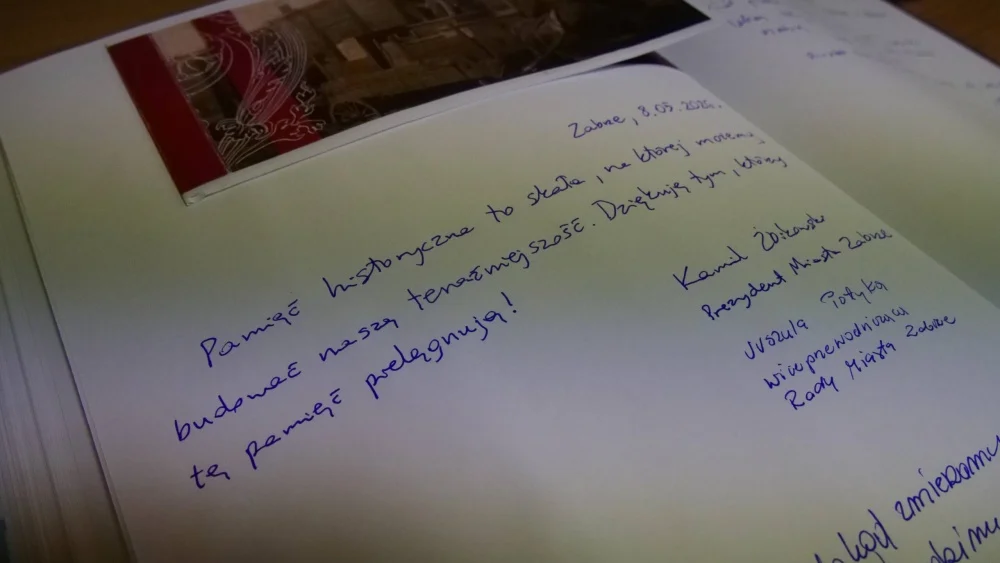 Zabrze, 8.05.2026.
Pamięć historyczna to skała, na której możemy
budować naszą teraźniejszość. Dziękuję tym, którzy
tę pamięć pielęgnują!
Kamil Żbikowski
Prezydent Miasta Zabrze
Urszula Potyka
wiceprzewodnicząca
Rady Miasta Zabrze
zmierzamy